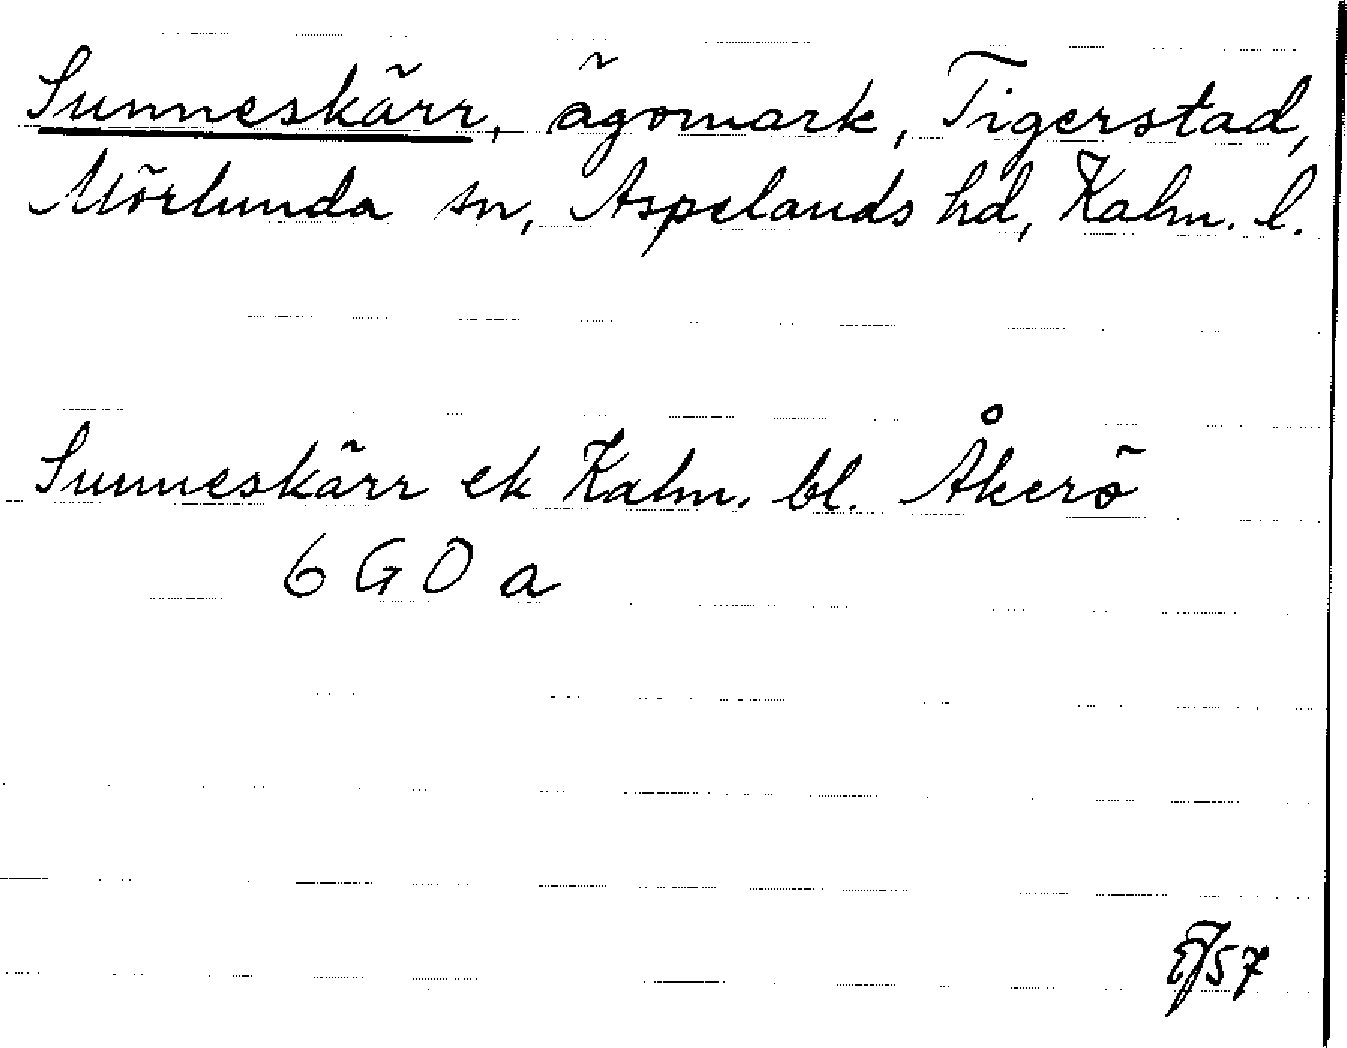 Sunneskärr, ägomark, Tigerstad,
Mörlunda sn, Aspelands hd, Kalm. l.
Sunneskärr ek Kalm. bl. Åkerö
6 G O a
57